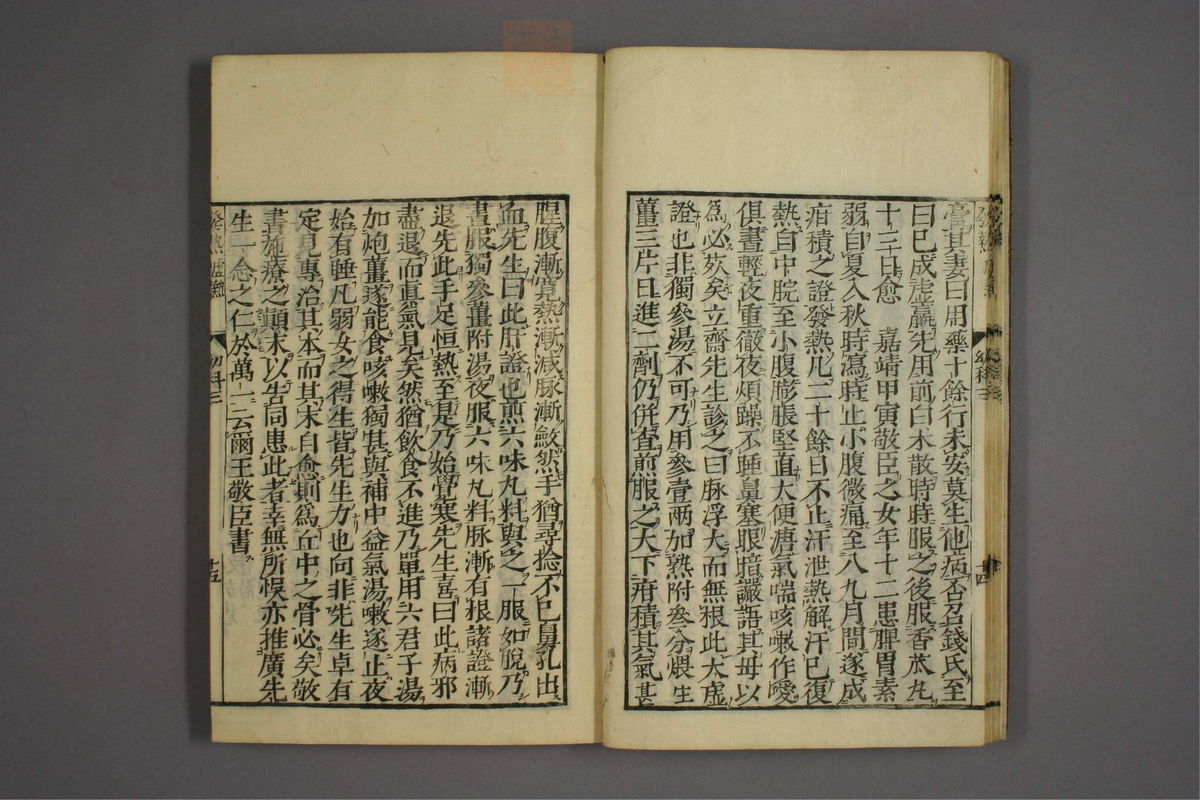 嘗其妻曰用藥十餘行未安莫生他病否召錢氏至
曰已成虛羸先用前白木散時時服之後服香瓜丸
十三日愈　嘉靖甲寅敬臣之女年十二患脾胃素
弱自夏入秋時瀉時止小腹微痛至八九月間遂成
疳積之證發熱凡二十餘日不止汗泄熱解汗已復
熱自中脘至小腹膨脹堅直大便溏氣喘咳嗽作噯
俱晝輕夜重徹夜煩躁不睡鼻塞眼暗讝語其母以
爲必死矣立齋先生診之曰脉浮大而無根此大虛
證也非獨參湯不可乃用參壹兩加熟附叁分煨生
薑三片日進二劑仍併查煎服之大下疳積其氣甚
腥腹漸寬熱漸減脉漸斂然手猶尋捻不已鼻孔出
血先生曰此肝證也煎六味丸料與之一服如脫乃
晝服獨參薑附湯夜服六味丸料脉漸有根諸證漸
退先此手足恒熱至是乃始覺寒先生喜曰此病邪
盡退而直氣見矣然猶飮食不進乃單用六君子湯
加炮薑遂能食咳嗽獨甚與補中益氣湯嗽遂止夜
始有睡凡弱女之得生皆先生力也向非先生卓有
定見專治其本而其末自愈則爲丘中之骨必矣敬
書施療之顚末以告同患此者幸無所悞亦推廣先
生一念之仁於萬一云爾王敬臣書
發熱虛熱
幼科三
十五
幼科三
十四